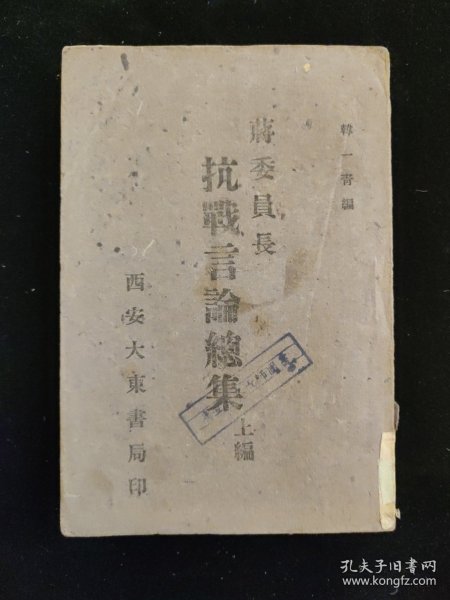 韓一青編
蔣委員長
抗戰言論總集
上編
西安大東書局印
孔夫子旧书网
www.kongfz.com